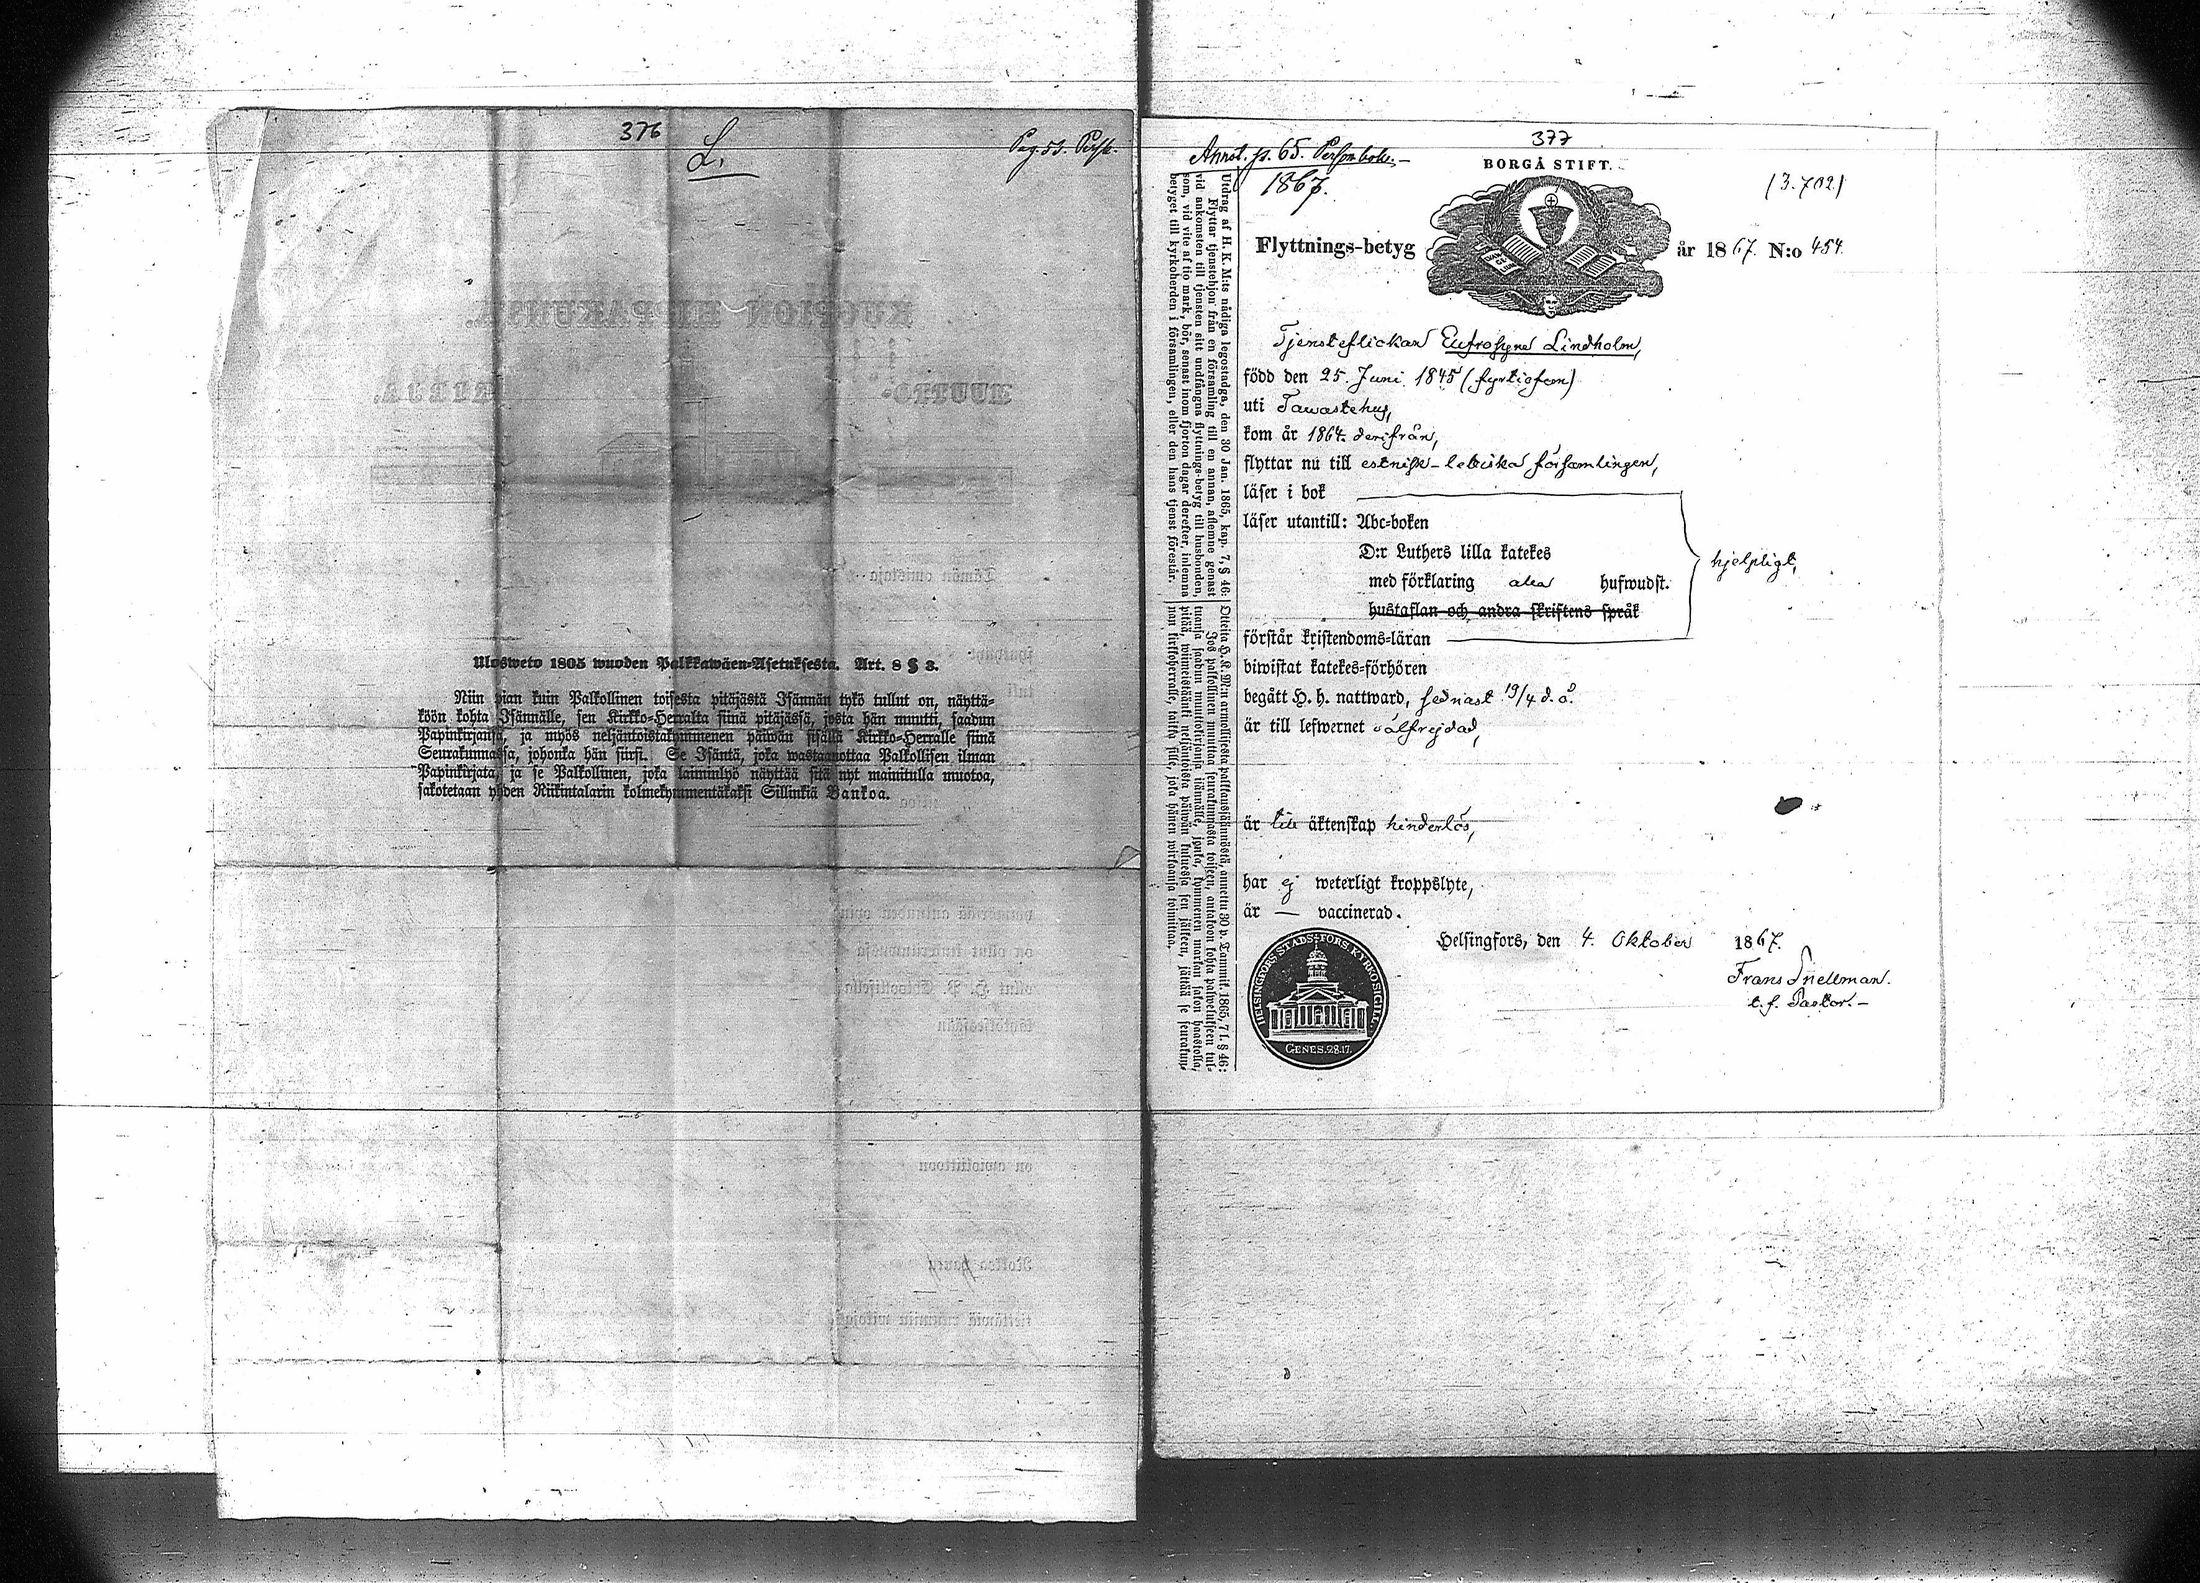 376
L.
Pag. 51. Persb.
Ulosweto 1805 wuoden Palkkawäen-Asetuksesta. Art. 8 § 3.
Niin pian kuin Palkollinen toisesta pitäjästä Isännän tykö tullut on, näyttä-
köön kohta Isännälle, sen Kirkko-Herralta siinä pitäjässä, josta hän muutti, saadun
Papinkirjansa, ja myös neljäntoistakymmenen päiwän sisällä Kirkko-Herralle siinä
Seurakunnassa, johonka hän siirsi. Se Isäntä, joka wastaanottaa Palkollisen ilman
Papinkirjata, ja se Palkollinen, joka laiminlyö näyttää sitä nyt mainitulla muotoa,
sakotetaan yhden Riikintalarin kolmekymmentäkaksi Sillinkiä Bankoa.
377
Annot. p. 65. Personbok.
1867.
BORGÅ STIFT.
(3.702)
Flyttnings-betyg år 1867. N:o 454.
Tjensteflickan Eufrosyne Lindholm,
född den 25. Juni 1845 (fyrtiofem)
uti Tawastehus,
kom år 1864. derifrån,
flyttar nu till estnisk-lettiska församlingen,
läser i bok
läser utantill: Abc-boken
D:r Luthers lilla katekes
med förklaring alla hufwudst.
hustaflan och andra skriftens språk
hjelpligt,
förstår kristendoms-läran
biwistat katekes-förhören
begått H. h. nattward, sednast 19/4 d. å.
är till lefwernet välfrejdad,
är till äktenskap hinderlös,
har ej weterligt kroppslyte,
är — vaccinerad.
Helsingfors, den 4. Oktober 1867.
Frans Snellman.
t. f. Pastor.
HELSINGFORS STADS-FÖRS. KYRKOSIGILL.
GENES. 28.17.
Utdrag af H. K. M:ts nådiga legostadga, den 30 Jan. 1865, kap. 7, § 46:
Flyttar tjenstehjon från en församling till en annan, aflemne genast
vid ankomsten till tjensten sitt undfångna flyttnings-betyg till husbonden,
som, vid vite af tio mark, bör, senast inom fjorton dagar derefter, inlemna
betyget till kyrkoherden i församlingen, eller den hans tjenst förestår.
Otteita H. K. M:n armollisesta palkkaussäännöstä, annettu 30 p. Tammik. 1865, 7 l. § 46:
Jos palkollinen muuttaa seurakunnasta toiseen, antakoon kohta palwelukseen tul-
tuansa saadun muuttokirjansa isännälle, jonka, kymmenen markan sakon haastolla,
pitää, wiimeistäänki neljäntoista päiwän kuluessa sen jälkeen, jättää se seurakun-
nan kirkkoherralle, taikka sille, joka hänen wirkaansa toimittaa.